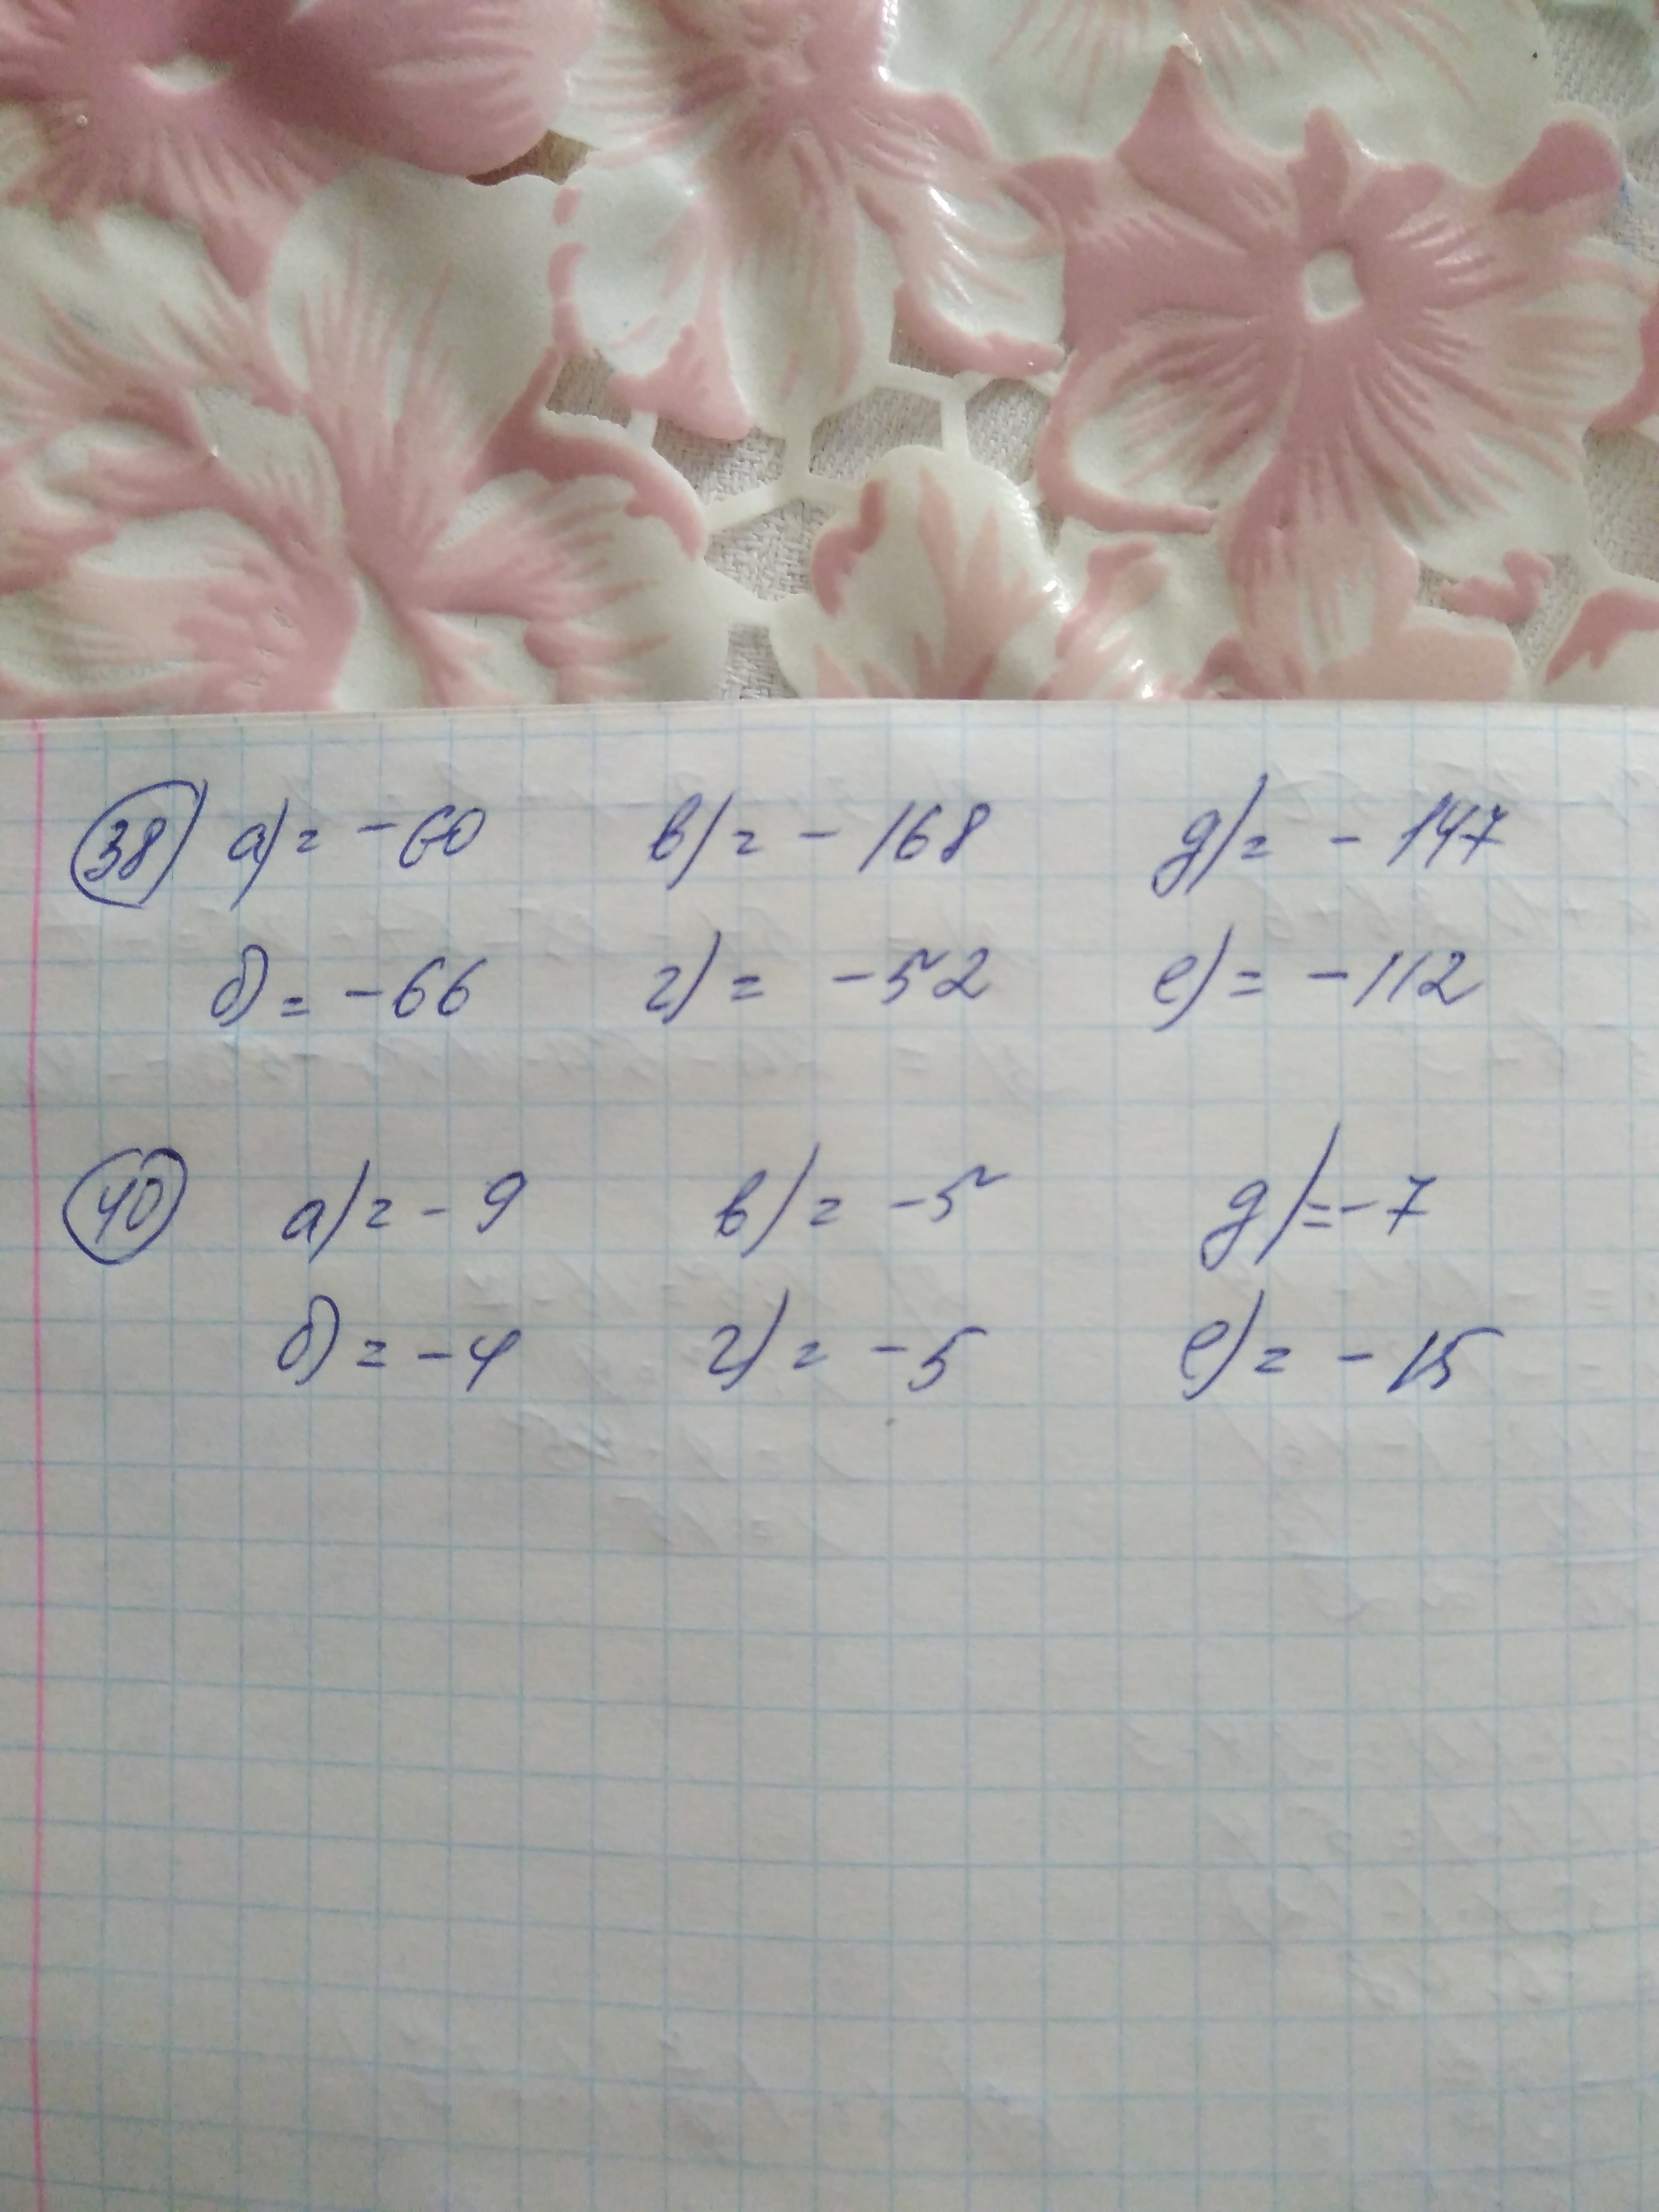 38 а) = -60 в) = - 168 д) = - 147
б) = -66 г) = -52 е) = -112
40 а) = - 9 в) = -5 д) = - 7
б) = -4 г) = -5 е) = - 15